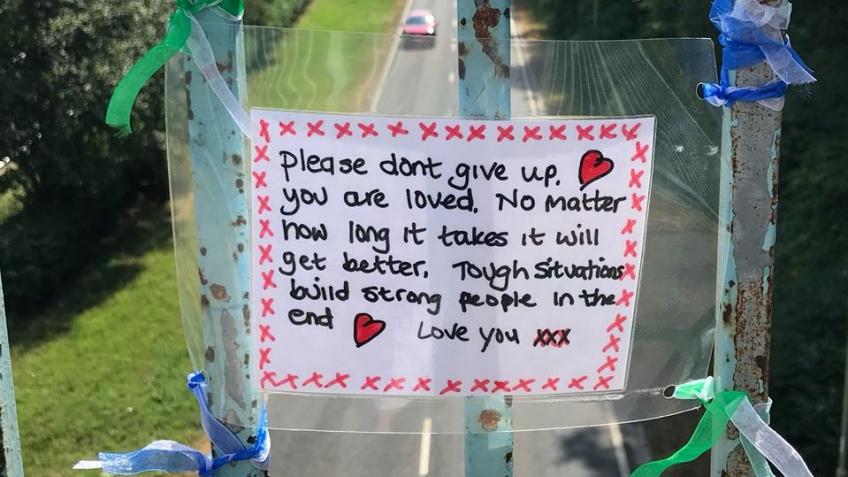 Please dont give up.
you are loved. No matter
how long it takes it will
get better. Tough situations
build strong people in the
end Love you xxx